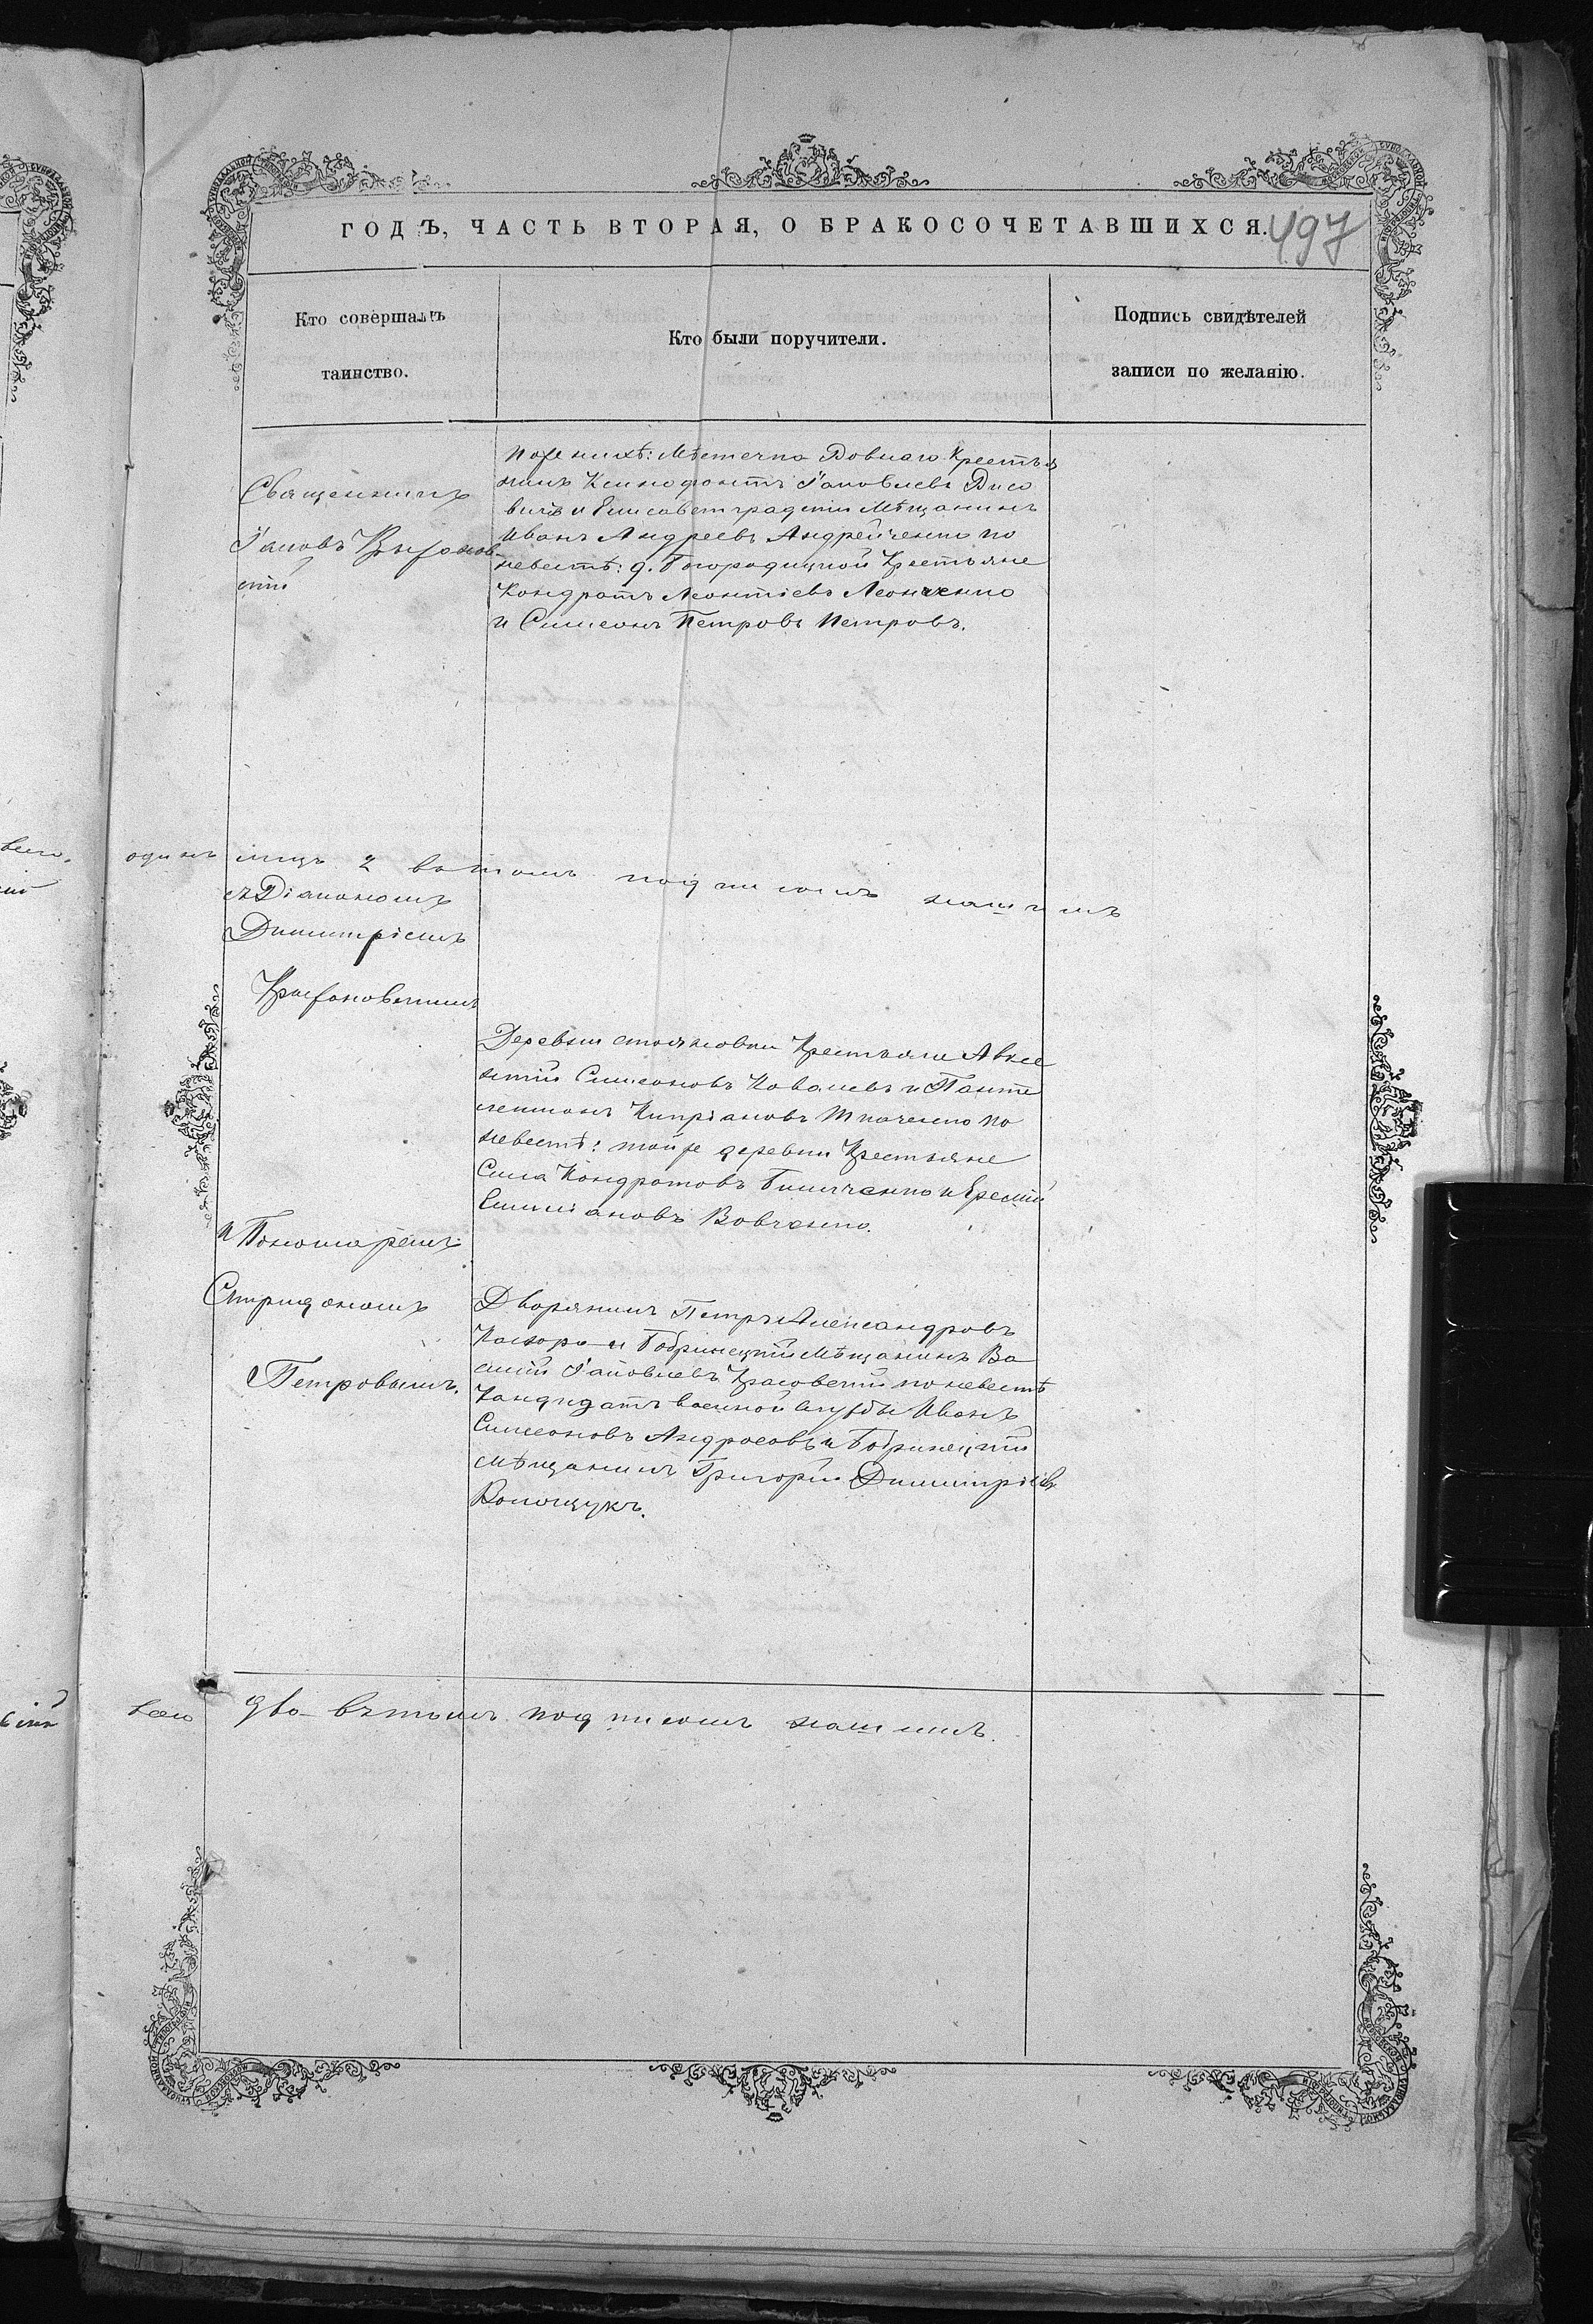 ГОДЪ, ЧАСТЬ ВТОРАЯ, О БРАКОСОЧЕТАВШИХСЯ.
497
Кто совершалъ
таинство.
Кто были поручители.
Подпись свидѣтелей
записи по желанію.
Священникъ
Іаковъ
скій
По женихѣ: Мѣстечка Ровнаго Крестья
нинъ Ксенофонтъ Іаковлевъ
и Елисаветградскій Мѣщанинъ
Иванъ Андреевъ Андрейченко по
невестѣ: д. Богородицкой Крестьяне
Кондратъ Леонтіевъ Леонченко
и Симеонъ Петровъ Петровъ.
одинъ 2 въ томъ подписомъ нашимъ
съ Діакономъ
Димитріемъ
Деревни Крестьяне Авксе
нтій Симеоновъ Ковалевъ и Панте
леимонъ Кипріановъ Ткаченко по
невестѣ: той же деревни Крестьяне
Сила Кондратовъ и Еремій
Емиліановъ Вовченко.
и Пономаремъ
Спиридономъ
Петровымъ.
Дворянинъ Петръ Александровъ
и Бобринецкій Мѣщанинъ Ва
силій Іаковлевъ Красовскій по невестѣ
Кандидатъ военной службы Иванъ
Симеоновъ Андросовъ и Бобринецкій
мѣщанинъ Григорій Димитріевъ
Волощукъ.
два въ томъ подписомъ нашимъ.